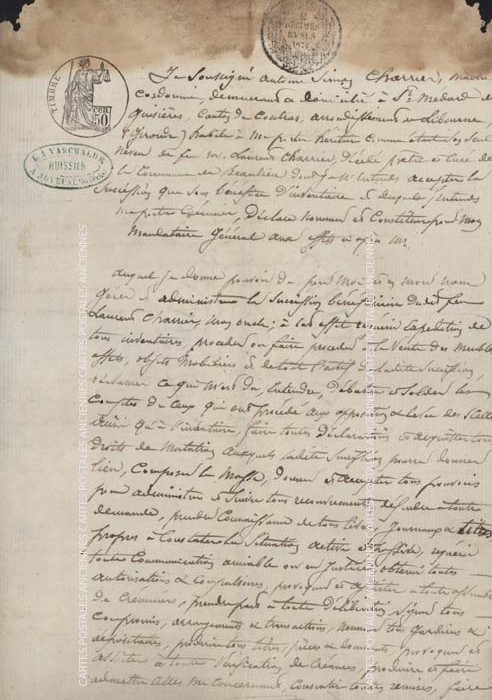 TIMBRE
50 cen
L. A. VASCHALDE
HUISSIER
A JOYEUSE
Je Soussigné antoine Simon Charrier,
Cordonnier, demeurant & domicilié à St Medard de
Guizières, Canton de Coutras, arrondissement de Libourne,
(Gironde) habile à me porter héritier comme étant le seul
neveu de feu Mr Laurent Charrier, décédé prêtre et curé de
la Commune de Beaulieu dont je n'entends accepter la
Succession que sous bénéfice d'inventaire & duquel j'entends
me porter héritier, Déclare nommer & Constituer pour mon
Mandataire Général aux effets ci après Mr
auquel je donne pouvoir de pour moi & en mon nom
Gérer & administrer la Succession bénéficiaire dudit feu
Laurent Charrier mon oncle; à cet effet requérir l'apposition de
tous inventaires, procéder ou faire procéder à la Vente des meubles
effets, objets Mobiliers & de tout l'actif de ladite Succession,
réclamer ce qui m'est dû, Entendre, Débattre & Solder les
Comptes de Ceux qui ont procédé aux appositions & levée des Scellés
ainsi qu'à l'inventaire, faire toutes Déclarations & acquitter tous
droits de Mutation auxquels ladite Succession pourra donner
lieu, Composer la Masse, Donner & accepter tous pouvoirs
pour administrer & Suivre tous recouvrements, défendre à toute
demande, prendre Connaissance de tous titres, journaux &
propres à Constater la Situation active & passive, requérir
toute Communication amiable ou en Justice, obtenir toutes
autorisations & Compulsoires, provoquer & assister à toute assemblée
de Créanciers, prendre part à toute Délibération, Signer tous
Compromis, arrangements & transactions, nommer tous Gardiens &
dépositaires, produire tous titres, pièces & documents, provoquer &
assister à toute Vérification de Créances, produire & faire
admettre Celles me Concernant, Consentir toutes remises, faire
CARTES POSTALES ANCIENNES